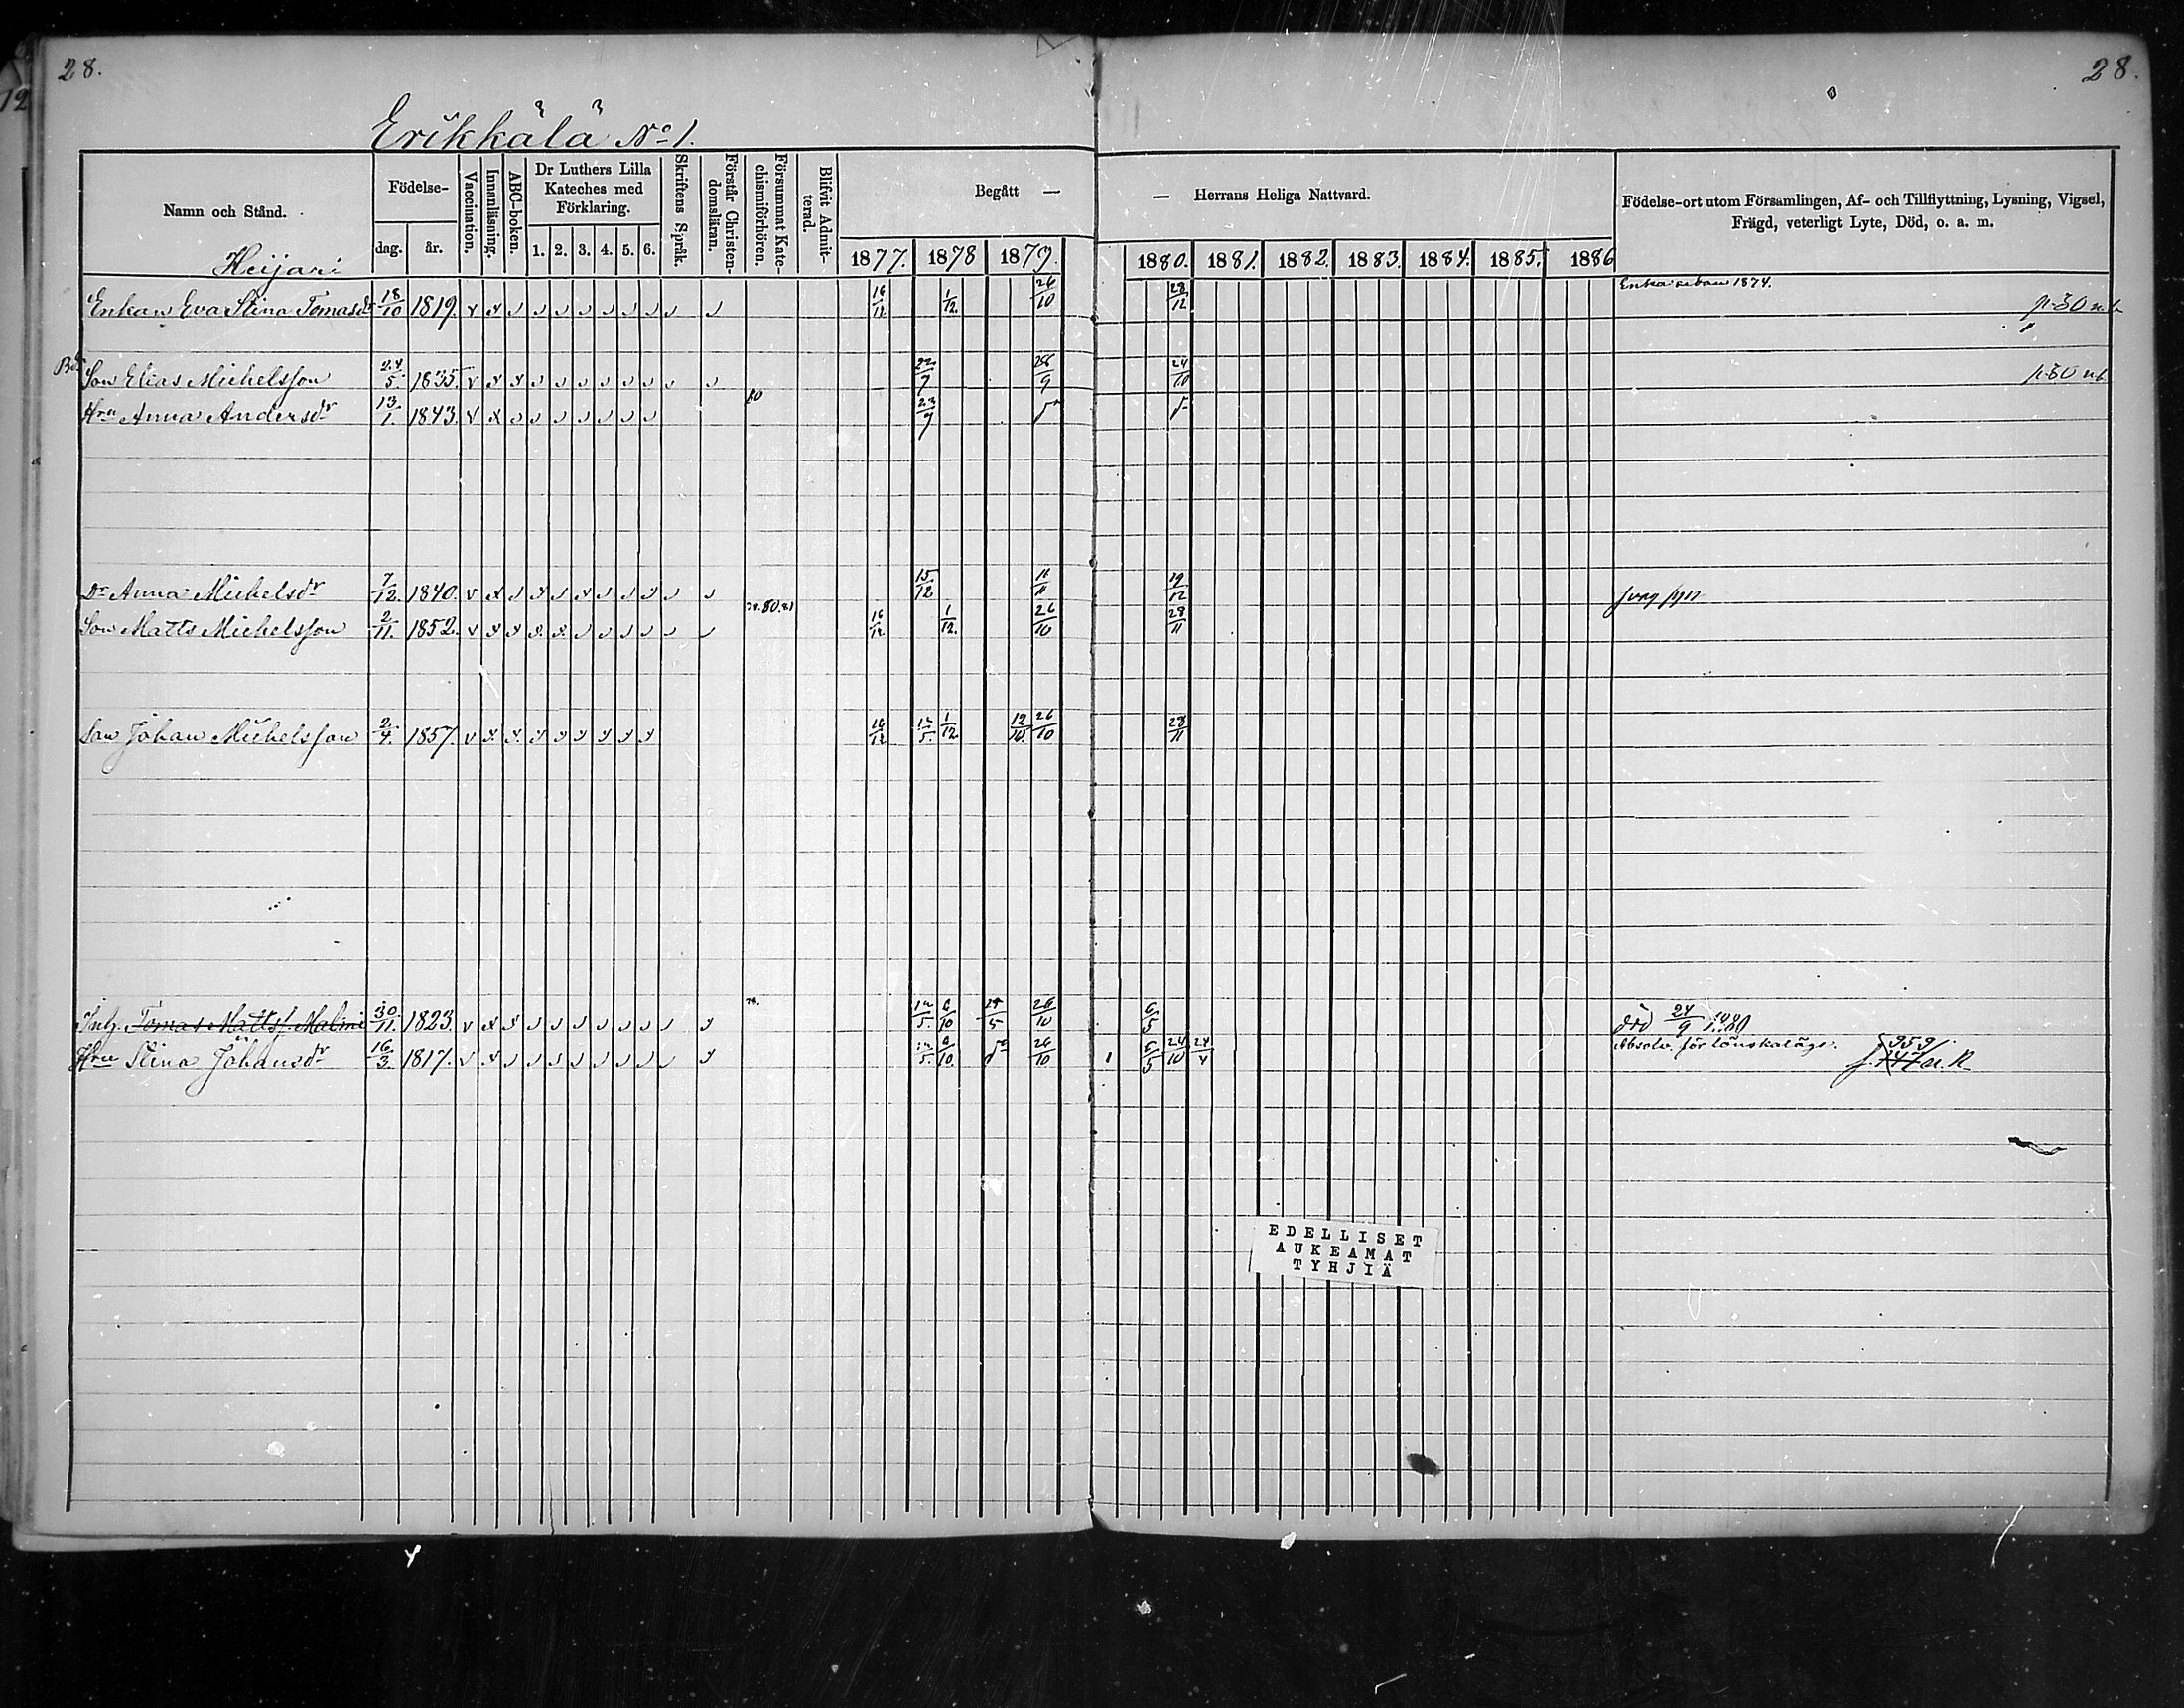 28.
28.
12
Erikkälä No 1.
Namn och Stånd.
Födelse-
dag.
år.
Vaccination.
Innanläsning.
ABC-boken.
Dr Luthers Lilla
Kateches med
Förklaring.
1. 2. 3. 4. 5. 6.
Skriftens Språk.
Förstår Christen-
domsläran.
Försummat Kate-
chismiförhören.
Blifvit Admit-
terad.
Begått —
— Herrans Heliga Nattvard.
1877. 1878 1879. 1880. 1881. 1882. 1883. 1884. 1885. 1886
Födelse-ort utom Församlingen, Af- och Tillflyttning, Lysning, Vigsel,
Frägd, veterligt Lyte, Död, o. a. m.
Heijari
Enkan Eva Stina Tomasdr 18/10 1819. 16/12 1/12. 26/10 28/12 Enka sedan 1874.
Son Elias Michelsson 24/5. 1835. 22/9 28/9 24/10
Hru Anna Andersdr 13/1. 1843. 80 23/9
Dr Anna Michelsdr 7/12. 1840. 15/12 11/11 19/12
Son Matts Michelsson 2/11. 1852. 80. 81 16/12 1/12. 26/10 28/11
Son Johan Michelsson 2/4. 1857. 16/12 12/5. 1/12 12/10. 26/10 28/11
Inh. Tomas Mattss. Malmi 30/11. 1823. 12/5. 6/10 25/5 26/10 6/5 död 24/9 1880
Hru Stina Johansdr 16/3. 1817. 12/5. 6/10. 26/10 6/5 24/10 24/4 Absolv. för lönskaläge. 959
EDELLISET
AUKEAMAT
TYHJIÄ